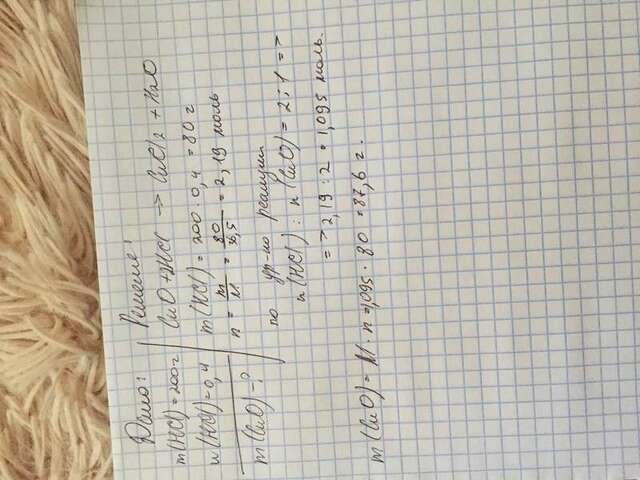 Дано:
m(HCl)=200г
w(HCl)=0,4
m(CuO)-?
Решение:
CuO+2HCl → CuCl2 + H2O
m(HCl) = 200·0,4 = 80 г
n = m/M = 80/36,5 = 2,19 моль
по ур-ю реакции
n(HCl) : n(CuO) = 2:1 =>
=> 2,19 : 2 = 1,095 моль.
m(CuO) = M·n = 1,095·80 = 87,6 г.